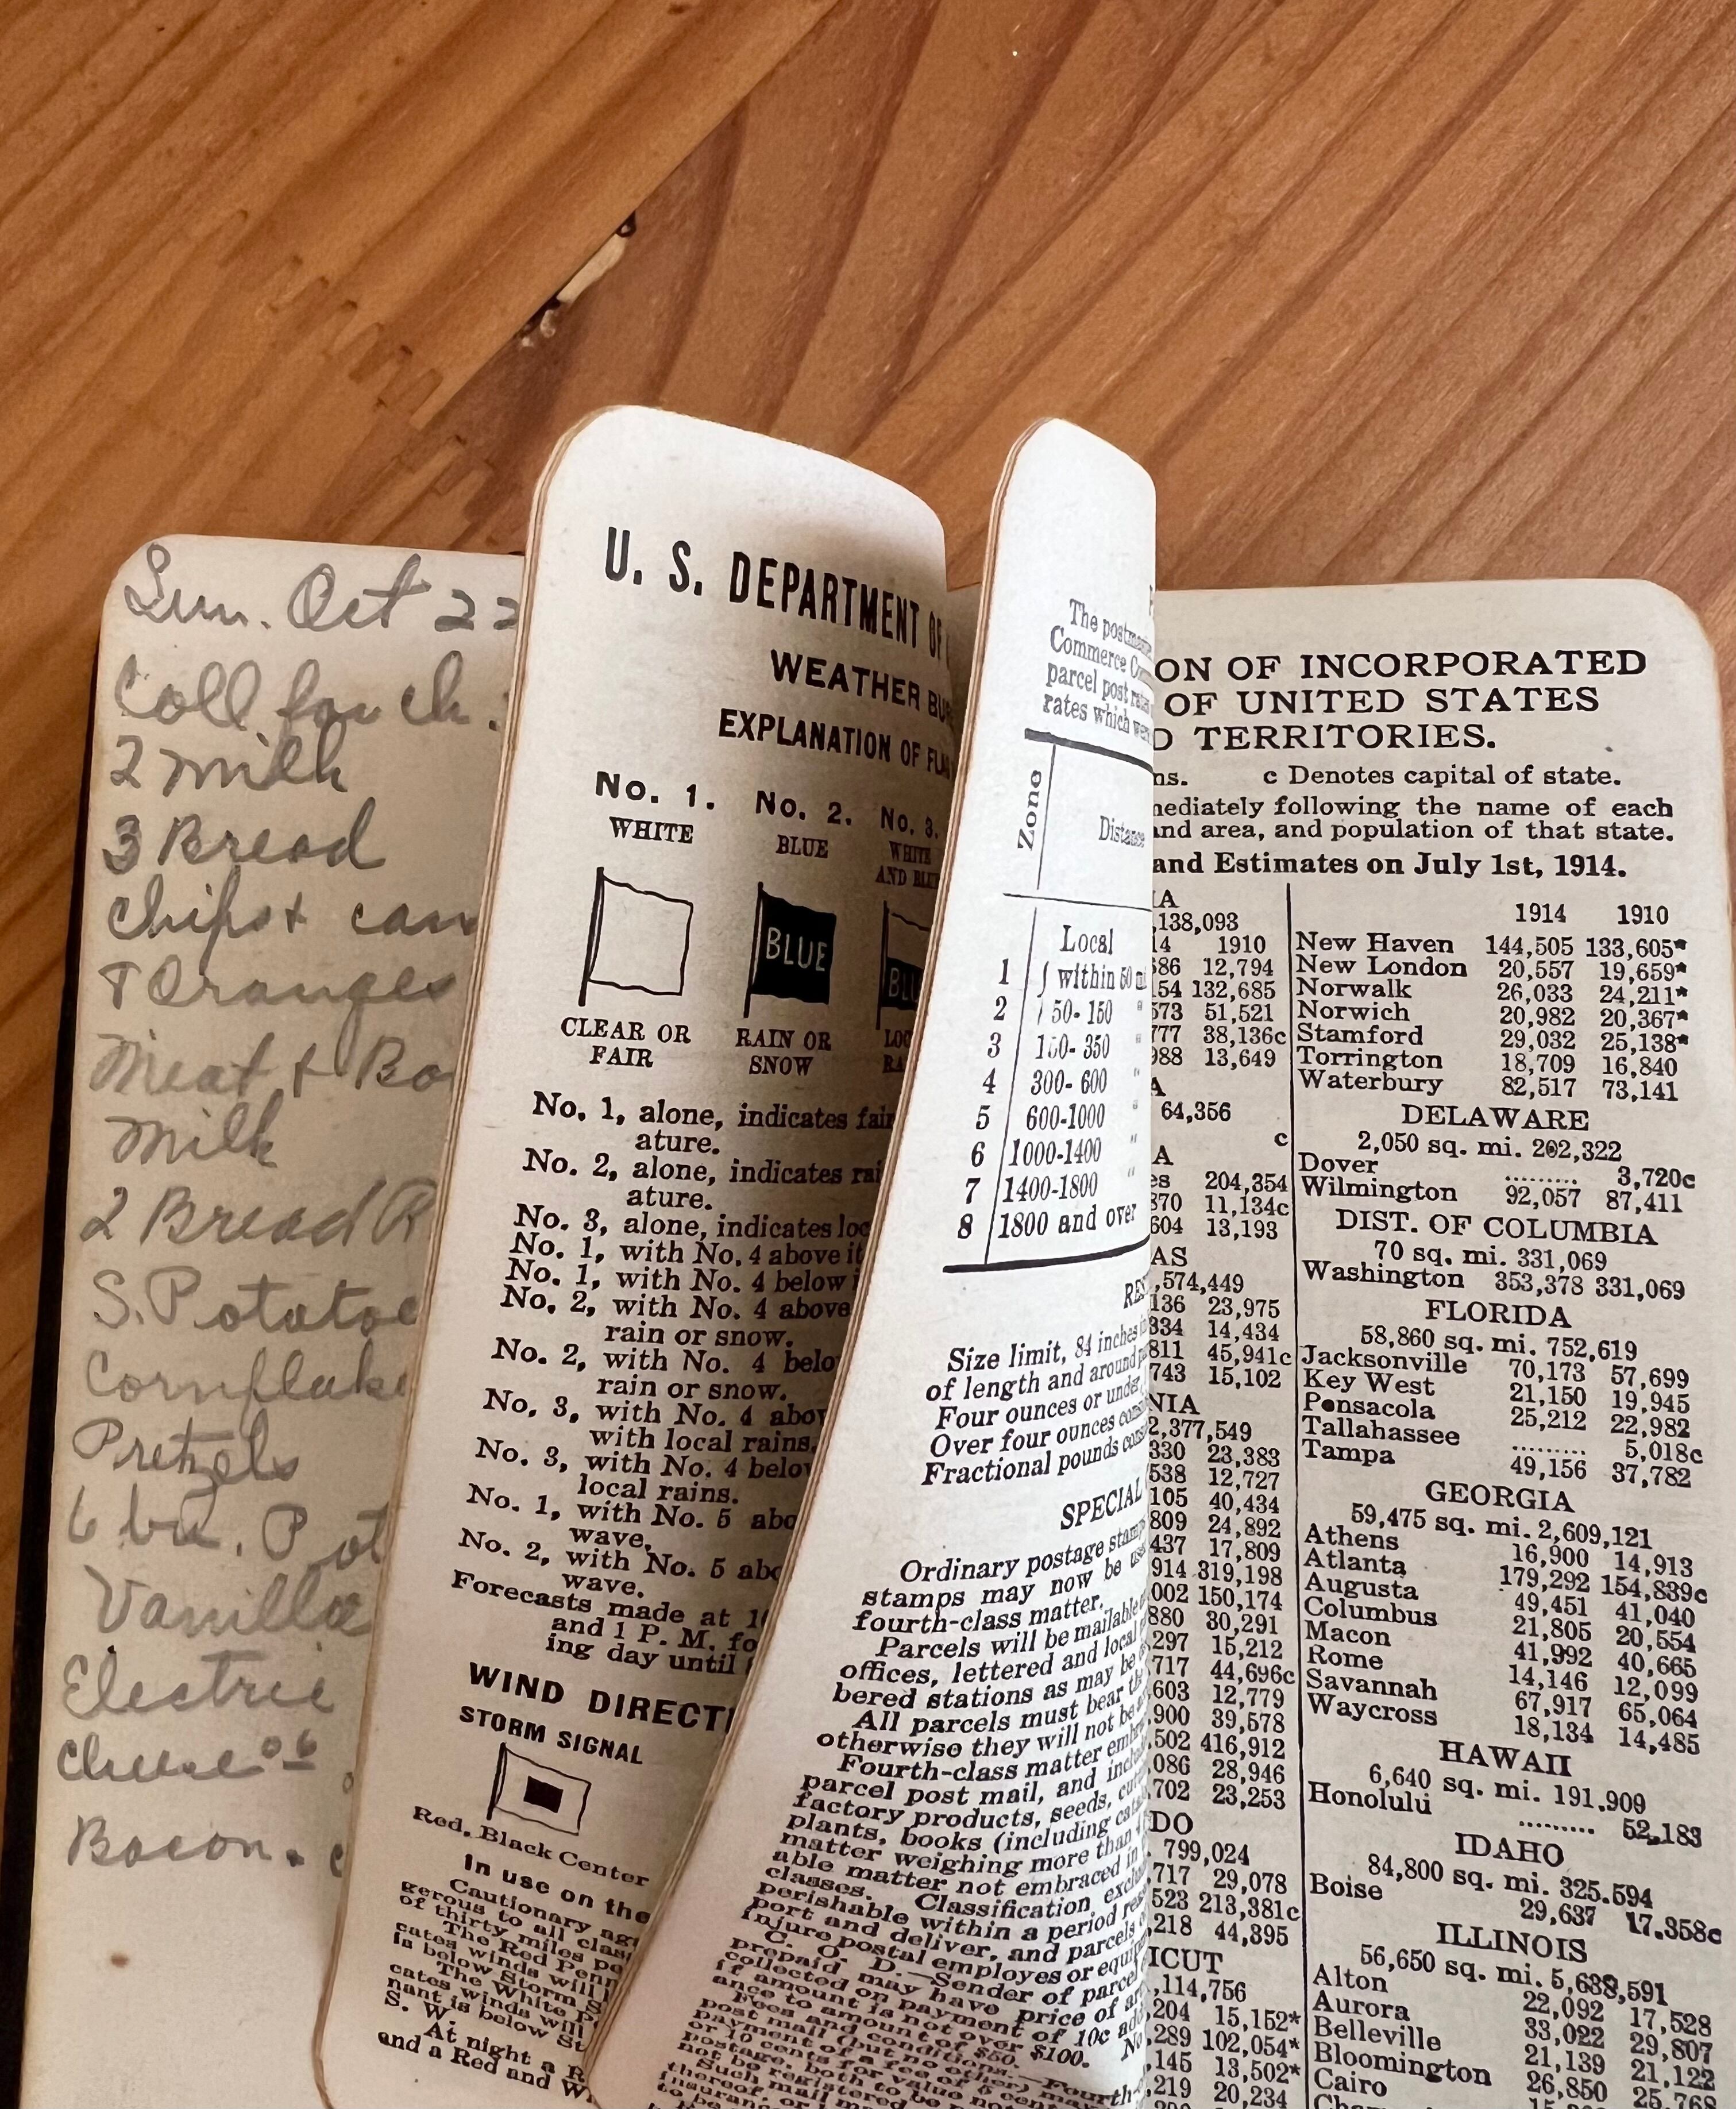 Sun. Oct 22
Coll for ch.
2 milk
3 Bread
Chips + can
8 Oranges
Meat + Bo
Milk
2 Bread R
S. Potatoe
Cornflake
Pretzels
6 bu. Pot
Vanilla
Electric
Cheese
Bacon.
U. S. DEPARTMENT OF
WEATHER BU
EXPLANATION OF FLA
No. 1. No. 2. No. 3.
WHITE BLUE WHITE
AND BLU
BLUE
BLU
CLEAR OR RAIN OR LOC
FAIR SNOW RA
No. 1, alone, indicates fair
ature.
No. 2, alone, indicates rai
ature.
No. 3, alone, indicates loc
No. 1, with No. 4 above it
No. 1, with No. 4 below i
No. 2, with No. 4 above
rain or snow.
No. 2, with No. 4 belo
rain or snow.
No. 3, with No. 4 abov
with local rains.
No. 3, with No. 4 belov
local rains.
No. 1, with No. 5 abo
wave.
No. 2, with No. 5 abo
wave.
Forecasts made at 10
and 1 P. M. fo
ing day until
WIND DIRECTI
STORM SIGNAL
Red, Black Center
In use on the
Cautionary
gerous to all class
of thirty miles pe
The Red Penn
cates winds will
is below Storm S
The White P
cates winds will
nant is below St
S. W.
At night a R
and a Red and W
The postma
Commerce Co
parcel post rates
rates which were
Zone Distance
Local
1 within 50 mi
2 50-150 "
3 150-350 "
4 300-600 "
5 600-1000 "
6 1000-1400 "
7 1400-1800 "
8 1800 and over
RES
Size limit, 84 inches
of length and around
Four ounces or under,
Over four ounces
Fractional pounds
SPECIAL
Ordinary postage stamps
stamps may now be use
fourth-class matter.
Parcels will be mailable
offices, lettered and local
bered stations as may be
All parcels must bear the
otherwise they will not be
Fourth-class matter embr
parcel post mail, and inclu
factory products, seeds,
plants, books (including
matter weighing more than
able matter not embraced in
classes. Classification
perishable within a period
port and deliver, and parcels
injure postal employes or equi
C. O. D.—Sender of parcel
prepaid may have price of
collected on payment of 10c
if amount is not over
ance to amount of $50.
Fees and conditions.—Fourth-
$100.
post mail (but no other) may
payment of a fee of 5 cent
or 10 cents for value
postage, both to be
not be registered
Such mail
thereof, or
ON OF INCORPORATED
OF UNITED STATES
D TERRITORIES.
ns. c Denotes capital of state.
mediately following the name of each
and area, and population of that state.
and Estimates on July 1st, 1914.
A
,138,093
14 1910
686 12,794
154 132,685
573 51,521
777 38,136c
988 13,649
A
64,356
c
A
es 204,354
870 11,134c
604 13,193
AS
,574,449
136 23,975
334 14,434
811 45,941c
743 15,102
NIA
2,377,549
330 23,383
538 12,727
105 40,434
809 24,892
437 17,809
914 319,198
002 150,174
880 30,291
,297 15,212
717 44,696c
,603 12,779
,900 39,578
,502 416,912
,086 28,946
,702 23,253
DO
799,024
,717 29,078
523 213,381c
,218 44,395
ICUT
,114,756
,204 15,152*
,289 102,054*
,145 13,502*
,219 20,234
1914 1910
New Haven 144,505 133,605*
New London 20,557 19,659*
Norwalk 26,033 24,211*
Norwich 20,982 20,367*
Stamford 29,032 25,138*
Torrington 18,709 16,840
Waterbury 82,517 73,141
DELAWARE
2,050 sq. mi. 202,322
Dover ......... 3,720c
Wilmington 92,057 87,411
DIST. OF COLUMBIA
70 sq. mi. 331,069
Washington 353,378 331,069
FLORIDA
58,860 sq. mi. 752,619
Jacksonville 70,173 57,699
Key West 21,150 19,945
Pensacola 25,212 22,982
Tallahassee ......... 5,018c
Tampa 49,156 37,782
GEORGIA
59,475 sq. mi. 2,609,121
Athens 16,900 14,913
Atlanta 179,292 154,839c
Augusta 49,451 41,040
Columbus 21,805 20,554
Macon 41,992 40,665
Rome 14,146 12,099
Savannah 67,917 65,064
Waycross 18,134 14,485
HAWAII
6,640 sq. mi. 191,909
Honolulu ......... 52,183
IDAHO
84,800 sq. mi. 325,594
Boise 29,637 17,358c
ILLINOIS
56,650 sq. mi. 5,638,591
Alton 22,092 17,528
Aurora 33,022 29,807
Belleville 21,139 21,122
Bloomington 26,850 25,768
Cairo